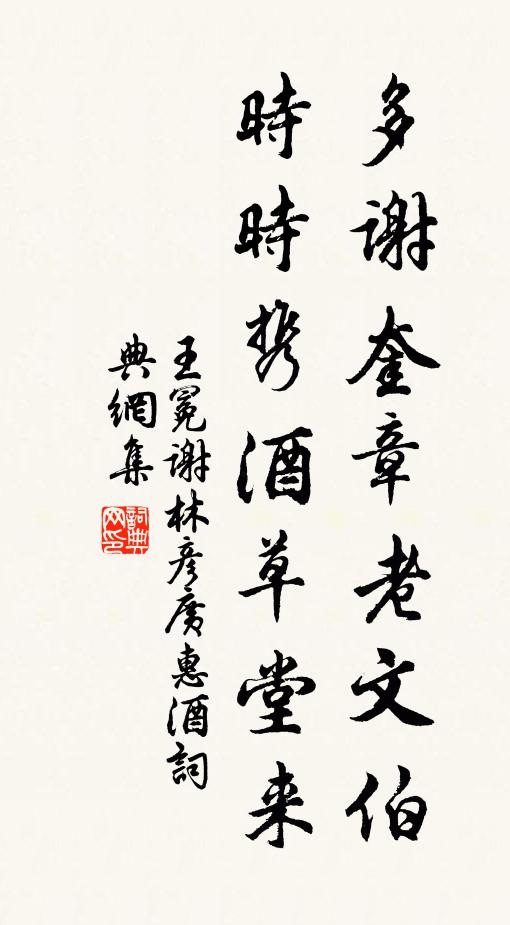 多謝奎章老文伯
時時携酒草堂来
王冕謝林彦廣惠酒詞
典網集
詞典
网印